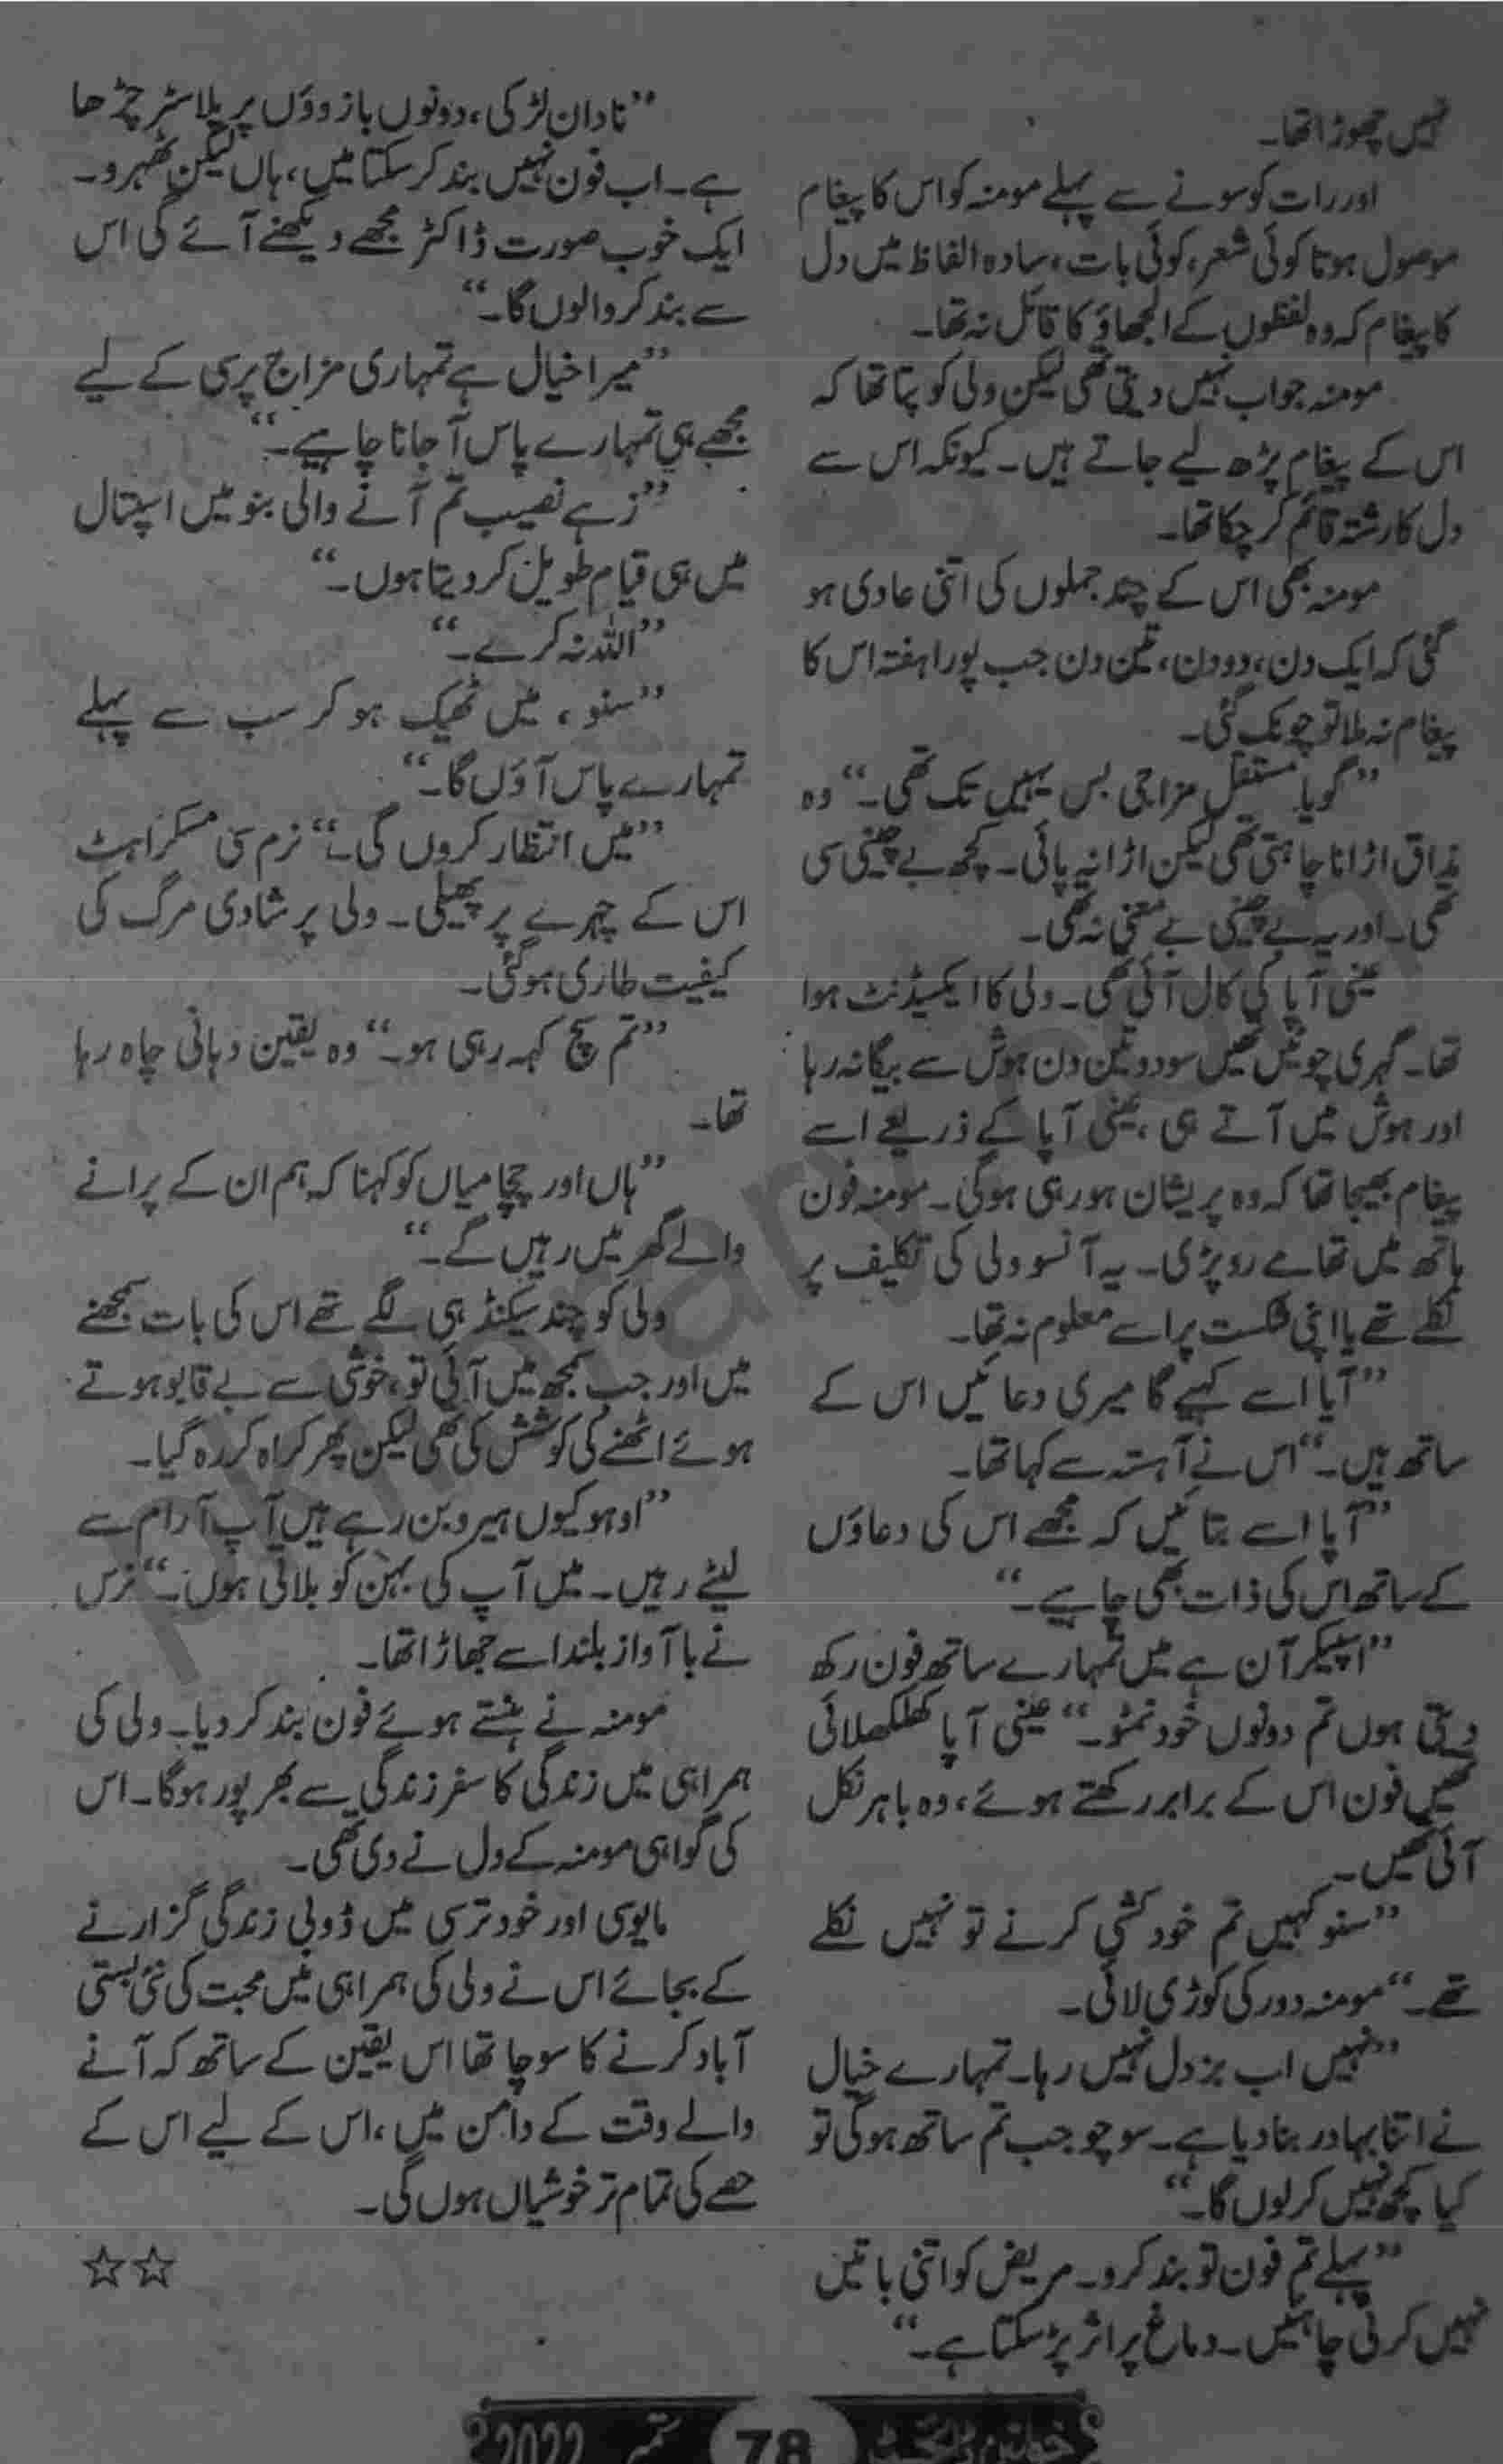 نہیں چھوڑا تھا۔
اور رات کو سونے سے پہلے مومنہ کو اس کا پیغام
موصول ہوتا کوئی شعر، کوئی بات، سادہ الفاظ میں دل
کا پیغام کہ وہ لفظوں کے الجھاؤ کا قائل نہ تھا۔
مومنہ جواب نہیں دیتی تھی لیکن ولی کو پتا تھا کہ
اس کے پیغام پڑھ لیے جاتے ہیں۔ کیونکہ اس سے
دل کا رشتہ قائم کر چکا تھا۔
مومنہ بھی اس کے چند جملوں کی اتنی عادی ہو
گئی کہ ایک دن، دو دن، تین دن جب پورا ہفتہ اس کا
پیغام نہ ملا تو چونک گئی۔
”گویا مستقل مزاجی بس یہیں تک تھی۔“ وہ
مذاق اڑانا چاہتی تھی لیکن اڑا نہ پائی۔ کچھ بے چینی سی
تھی۔ اور یہ بے چینی بے معنی نہ تھی۔
عینی آپا کی کال آئی تھی۔ ولی کا ایکسیڈنٹ ہوا
تھا۔ گہری چوٹیں تھیں سو دو تین دن ہوش سے بیگانہ رہا
اور ہوش میں آتے ہی، عینی آپا کے ذریعے اسے
پیغام بھیجا تھا کہ وہ پریشان ہو رہی ہوگی۔ مومنہ فون
ہاتھ میں تھامے رو پڑی۔ یہ آنسو ولی کی تکلیف پر
نکلے تھے یا اپنی شکست پر اسے معلوم نہ تھا۔
”آپا اسے کہیے گا میری دعائیں اس کے
ساتھ ہیں۔“ اس نے آہستہ سے کہا تھا۔
”آپا اسے بتائیں کہ مجھے اس کی دعاؤں
کے ساتھ اس کی ذات بھی چاہیے۔“
”اسپیکر آن ہے میں تمہارے ساتھ فون رکھ
دیتی ہوں تم دونوں خود نمٹو۔“ عینی آپا کھلکھلائی
تھیں فون اس کے برابر رکھتے ہوئے، وہ باہر نکل
آئی تھیں۔
”سنو کہیں تم خودکشی کرنے تو نہیں نکلے
تھے۔“ مومنہ دور کی کوڑی لائی۔
”نہیں اب بزدل نہیں رہا۔ تمہارے خیال
نے اتنا بہادر بنا دیا ہے۔ سوچو جب تم ساتھ ہوگی تو
کیا کچھ نہیں کرلوں گا۔“
”پہلے تم فون تو بند کرو۔ مریض کو اتنی باتیں
نہیں کرنی چاہئیں۔ دماغ پر اثر پڑ سکتا ہے۔“
”نادان لڑکی، دونوں بازوؤں پر پلاسٹر چڑھا
ہے۔ اب فون نہیں بند کر سکتا میں، ہاں لیکن ٹھہرو۔
ایک خوب صورت ڈاکٹر مجھے دیکھنے آئے گی اس
سے بند کروالوں گا۔“
”میرا خیال ہے تمہاری مزاج پرسی کے لیے
مجھے ہی تمہارے پاس آ جانا چاہیے۔“
”زہے نصیب تم آنے والی بنو میں اسپتال
میں ہی قیام طویل کر دیتا ہوں۔“
”اللہ نہ کرے۔“
”سنو، میں ٹھیک ہو کر سب سے پہلے
تمہارے پاس آؤں گا۔“
”میں انتظار کروں گی۔“ نرم سی مسکراہٹ
اس کے چہرے پر پھیلی۔ ولی پر شادی مرگ کی
کیفیت طاری ہوگئی۔
”تم سچ کہہ رہی ہو۔“ وہ یقین دہانی چاہ رہا
تھا۔
”ہاں اور چچا میاں کو کہنا کہ ہم ان کے پرانے
والے گھر میں رہیں گے۔“
ولی کو چند سیکنڈ ہی لگے تھے اس کی بات سمجھنے
میں اور جب سمجھ میں آئی تو، خوشی سے بے قابو ہوتے
ہوئے اٹھنے کی کوشش کی تھی لیکن پھر کراہ کر رہ گیا۔
”اوہو کیوں ہیرو بن رہے ہیں آپ آرام سے
لیٹے رہیں۔ میں آپ کی بہن کو بلاتی ہوں۔“ نرس
نے با آواز بلند اسے جھاڑا تھا۔
مومنہ نے ہنستے ہوئے فون بند کر دیا۔ ولی کی
ہمراہی میں زندگی کا سفر زندگی سے بھرپور ہوگا۔ اس
کی گواہی مومنہ کے دل نے دی تھی۔
مایوسی اور خود ترسی میں ڈوبی زندگی گزارنے
کے بجائے اس نے ولی کی ہمراہی میں محبت کی نئی بستی
آباد کرنے کا سوچا تھا اس یقین کے ساتھ کہ آنے
والے وقت کے دامن میں، اس کے لیے اس کے
حصے کی تمام تر خوشیاں ہوں گی۔
☆☆
خواتین ڈائجسٹ 78 ستمبر 2022